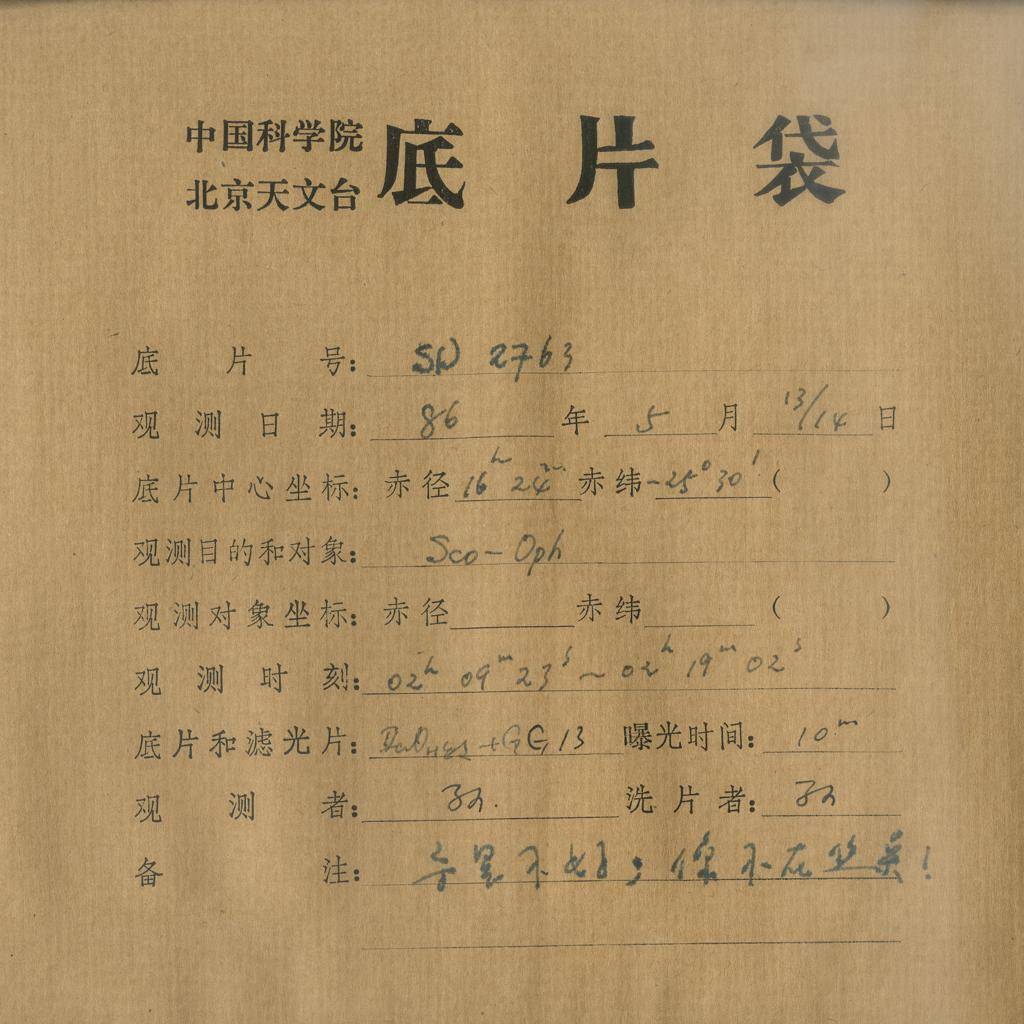 中国科学院
北京天文台 底片袋
底片号: SD 2763
观测日期: 86 年 5 月 13/14 日
底片中心坐标: 赤径 16h 24m 赤纬 -25°30′ ( )
观测目的和对象: Sco-Oph
观测对象坐标: 赤径 赤纬 ( )
观测时刻: 02h 09m 23s ~ 02h 19m 02s
底片和滤光片: +GG13 曝光时间: 10m
观测者: 洗片者:
备注: 导星不好; 像不在